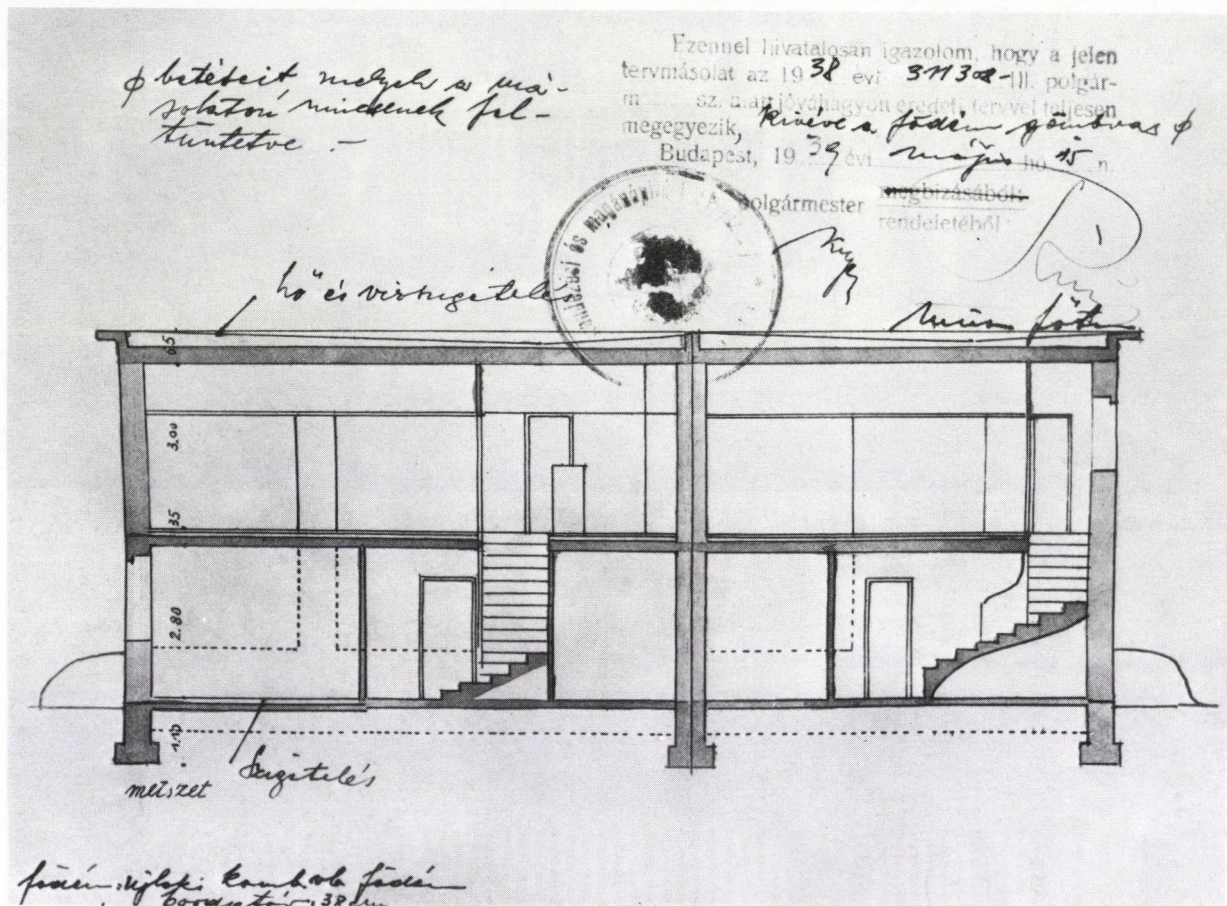 ϕ betéteit melyek a má-
solaton nincsenek fel-
tüntetve –
Ezennel hivatalosan igazolom, hogy a jelen
tervmásolat az 1938 évi 311302-III. polgár-
m sz. alatt jóváhagyott eredeti tervvel teljesen
megegyezik, kivéve a födém gömbvas ϕ
Budapest, 1939 évi május hó 15 n.
polgármester megbizásából:
rendeletéből
és magánépítési
hő és vizszigetelés
65
3,00
35
2.80
1.10
Szigetelés
metszet
födém: ujlaki födém
38 cm